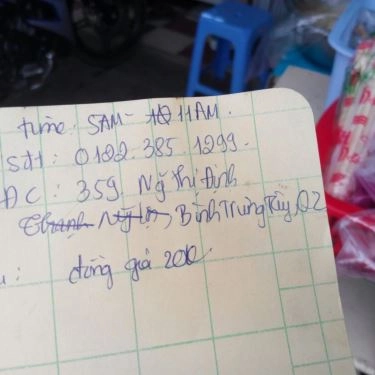 time: 5AM - 11AM.
sđt: 0122.385.1299.
ĐC: 359 Ng Thị Định
Bình Trưng Tây, Q2
đồng giá 200